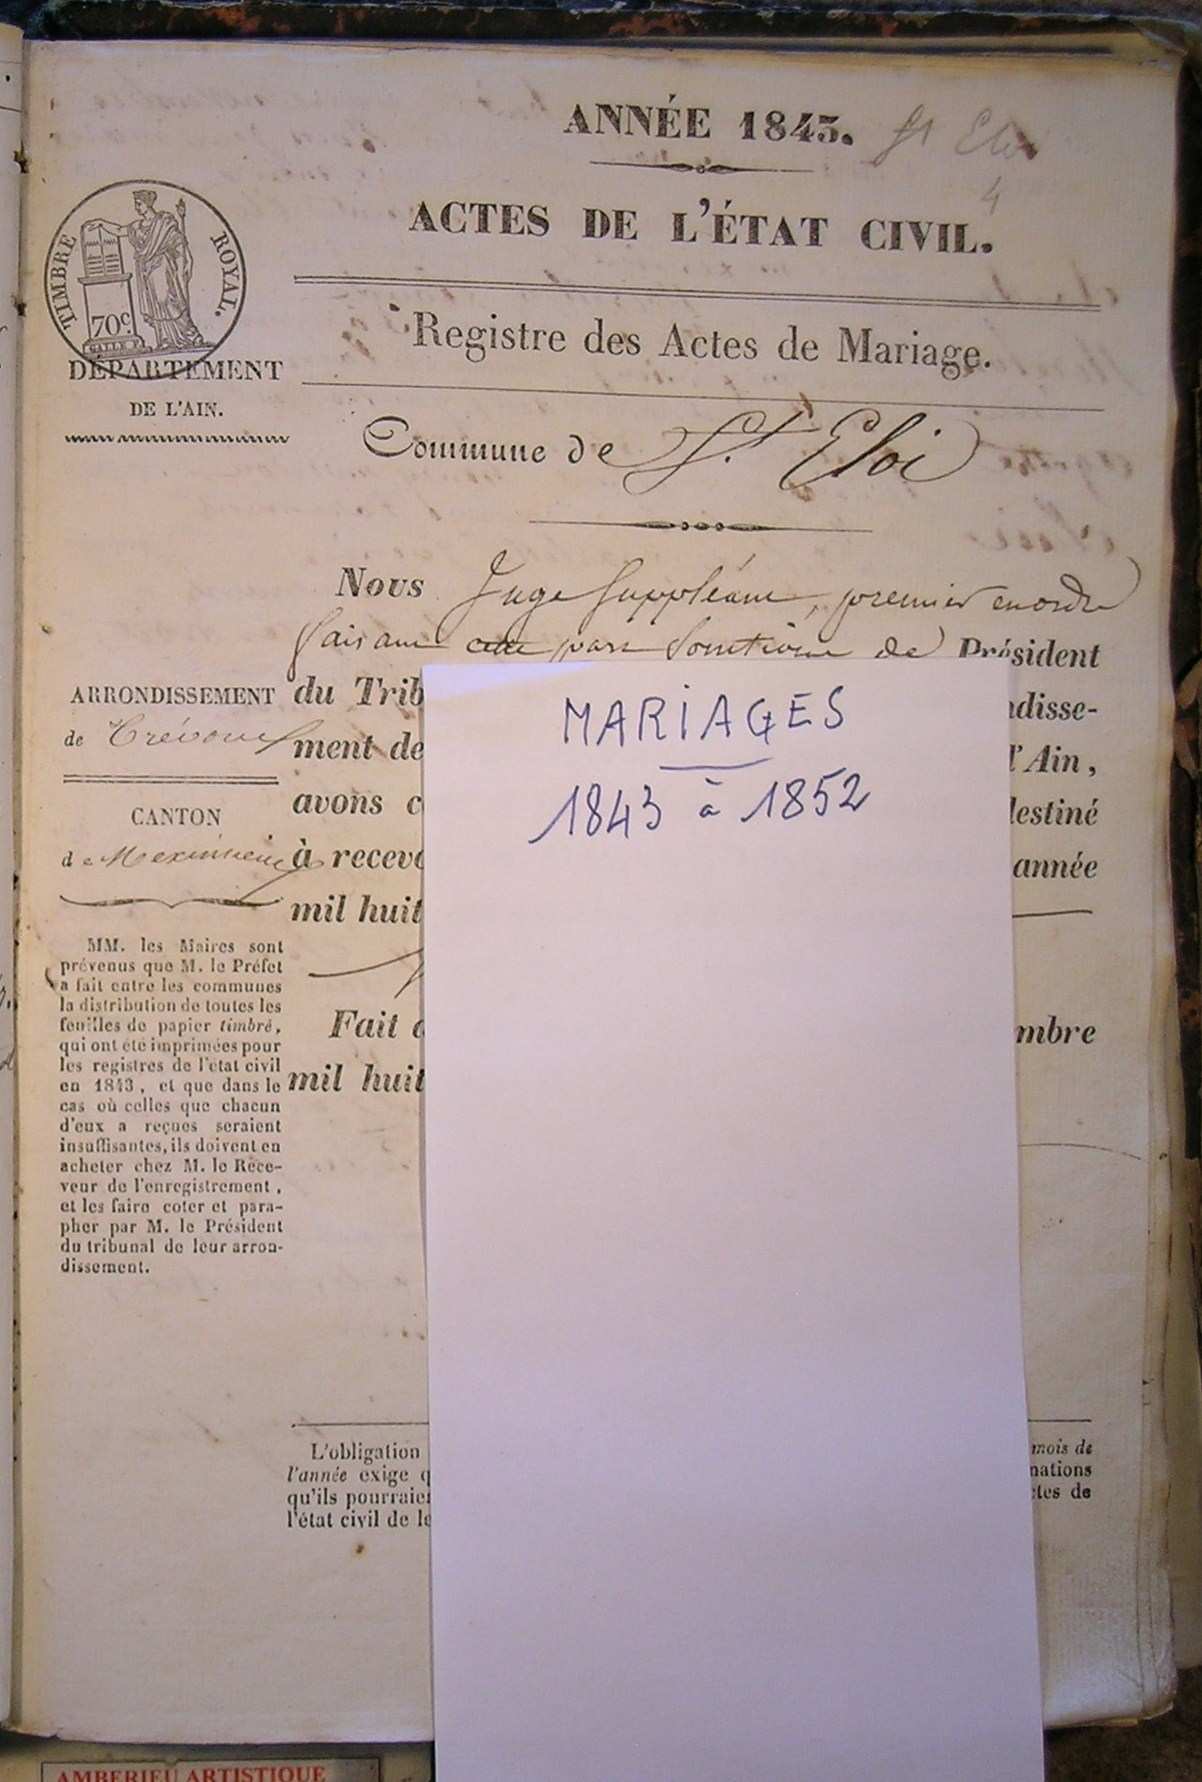 ANNÉE 1843. St Eloi
4
ACTES DE L'ÉTAT CIVIL.
TIMBRE ROYAL.
70c
DÉPARTEMENT
DE L'AIN.
Registre des Actes de Mariage.
Commune de St. Eloi
Nous Juge Suppléant, premier en ordre
faisant fonctions de Président
ARRONDISSEMENT
de Trévoux
CANTON
de Meximieux
MM. les Maires sont
prévenus que M. le Préfet
a fait entre les communes
la distribution de toutes les
feuilles de papier timbré,
qui ont été imprimées pour
les registres de l'état civil
en 1843, et que dans le
cas où celles que chacun
d'eux a reçues seraient
insuffisantes, ils doivent en
acheter chez M. le Rece-
veur de l'enregistrement,
et les faire coter et para-
pher par M. le Président
du tribunal de leur arron-
dissement.
du Trib
ndisse-
ment de
l'Ain,
avons c
destiné
à recevo
année
mil huit
Fait à
mbre
mil huit
MARIAGES
1843 à 1852
L'obligation
mois de
l'année exige q
mations
qu'ils pourraien
ctes de
l'état civil de le
AMBERIEU ARTISTIQUE